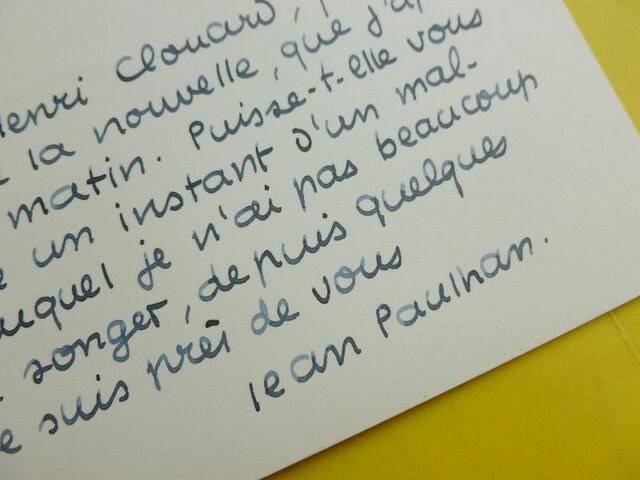 Henri Clouard,
la nouvelle, que j'ap
matin. Puisse-t-elle vous
un instant d'un mal-
uquel je n'ai pas beaucoup
songer, depuis quelques
e suis près de vous
Jean Paulhan.